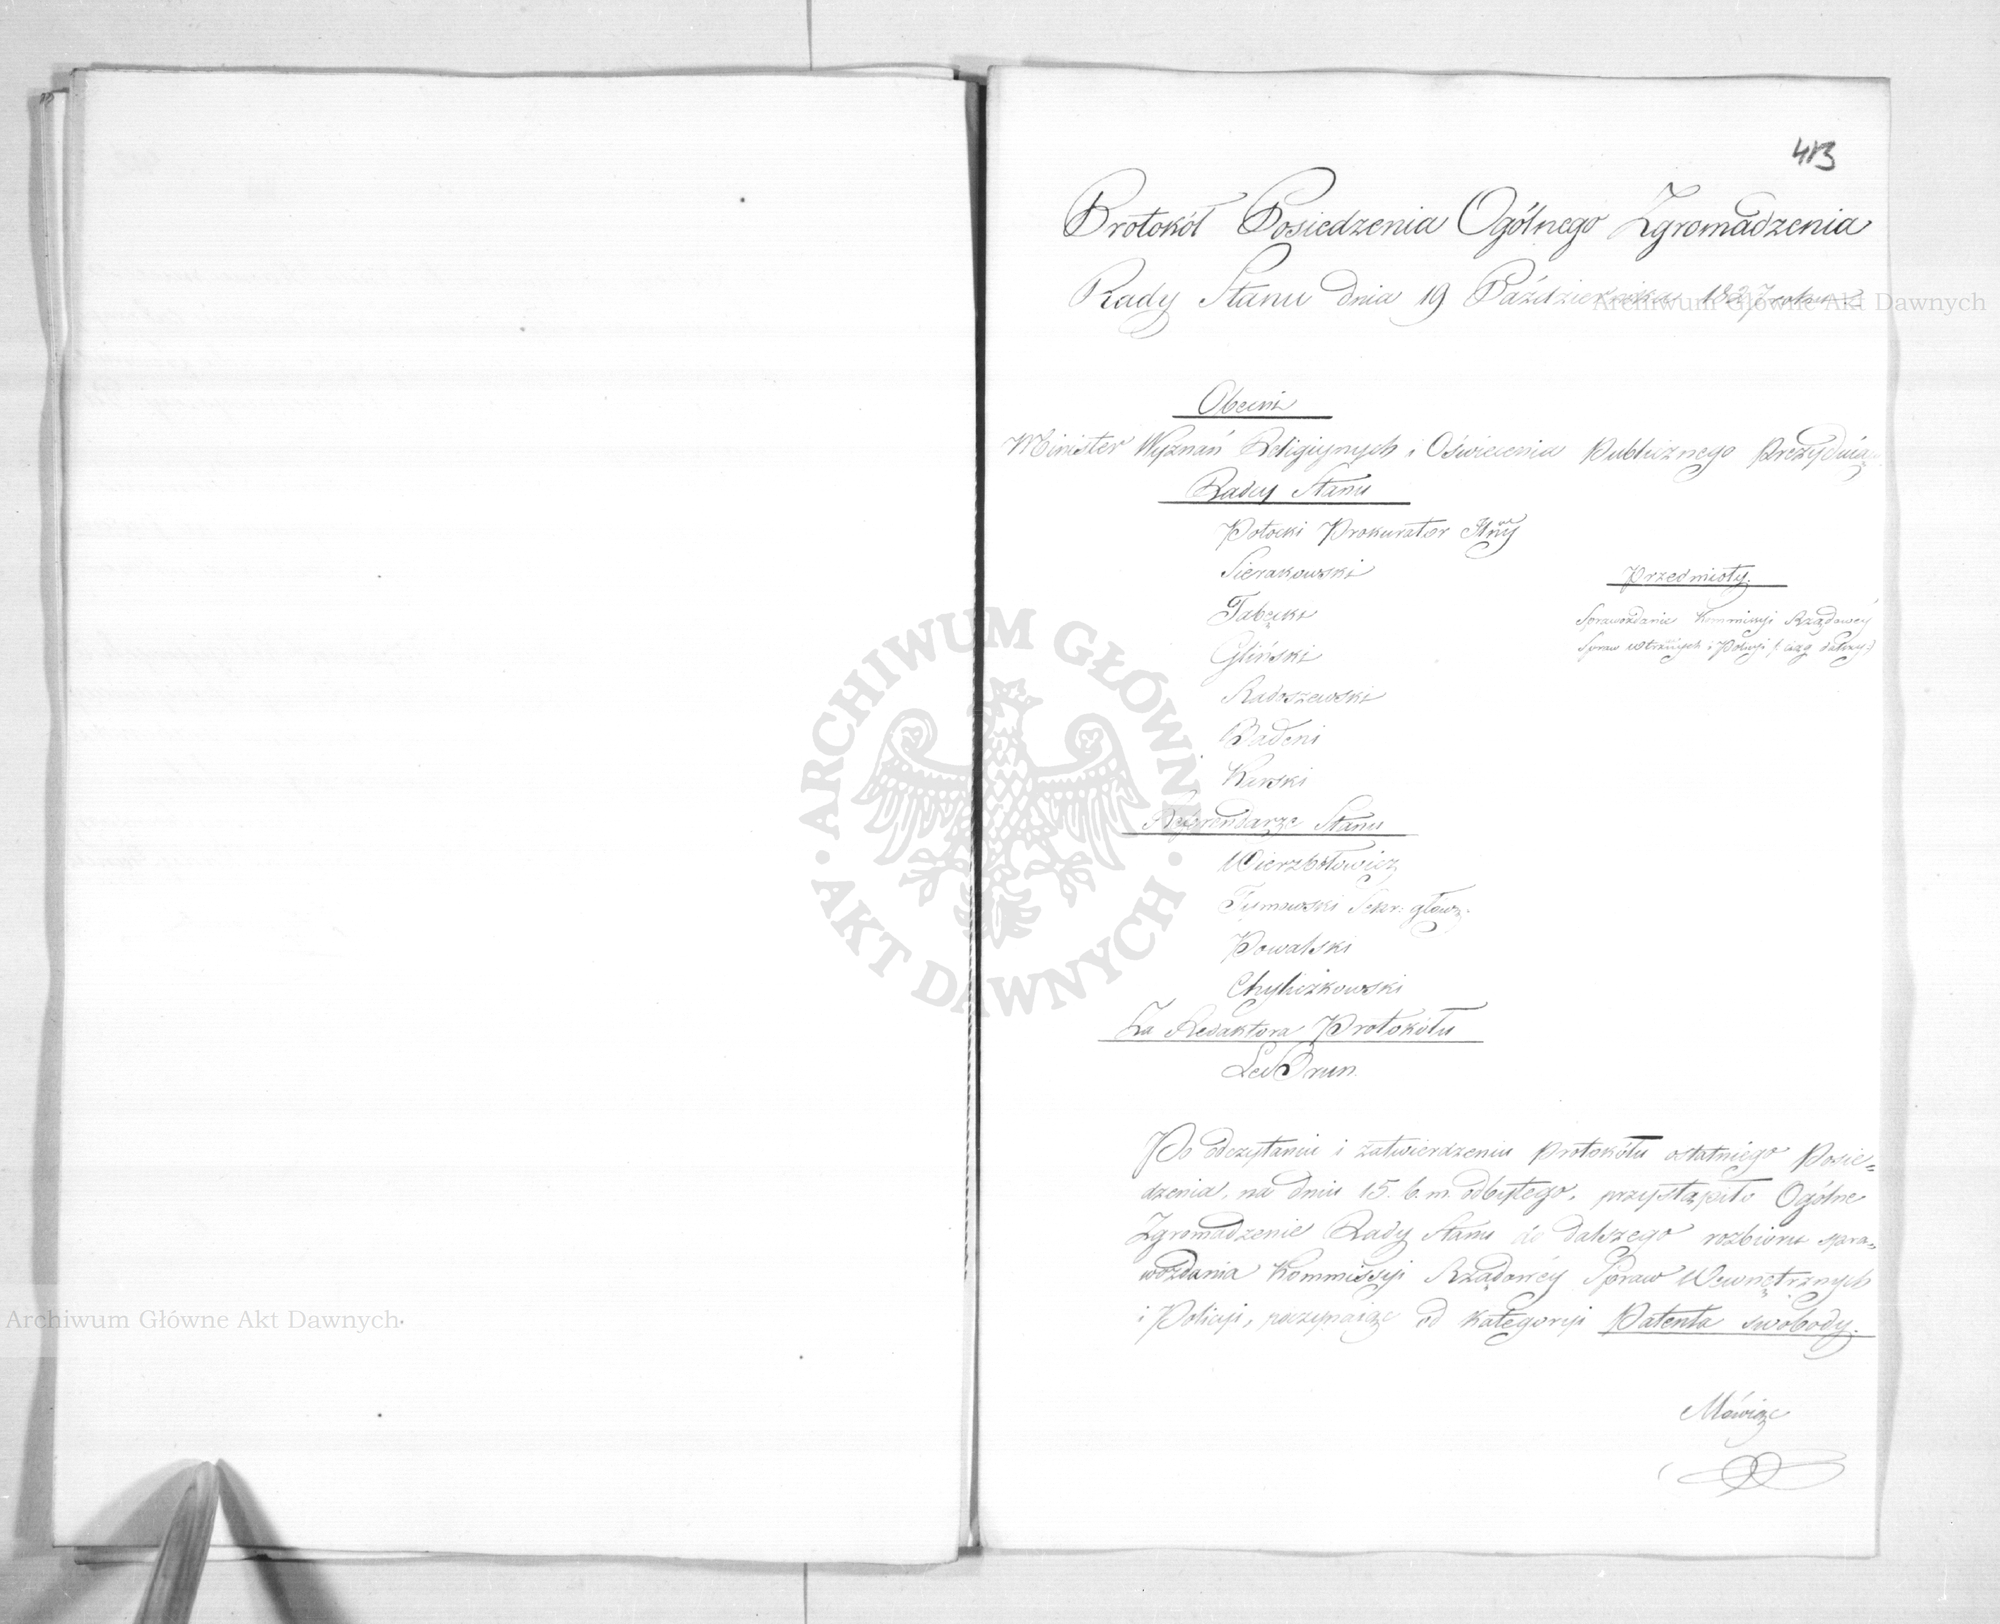 413
Protokół Posiedzenia Ogólnego Zgromadzenia
Rady Stanu dnia 19 Października 1827 roku
Obecni
Minister Wyznań Religiynych i Oświecenia Publicznego Prezyduiąc
Radcy Stanu
Potocki Prokurator
Sierakowski
Tabęcki
Gliński
Radoszewski
Badeni
Karski
Przedmioty.
Sprawozdanie Kommissyi Rządowey
Spraw wtrznych i Policyi (: ciąg dalszy :)
Referendarze Stanu
Wierzbołowicz
Tymowski Sekr: główn:
Powalski
Chyliczkowski
Za Redaktora Protokółu
LeBrun
Po odczytaniu i zatwierdzeniu Protokółu ostatniego Posie=
dzenia, na dniu 15. b. m. odbytego, przystąpiło Ogólne
Zgromadzenie Rady Stanu do dalszego rozbioru spra=
wozdania Kommissyi Rządowéy Spraw Wewnętrznych
i Policyi, poczynaiąc od kategoryi Patenta swobody.
Mówiąc
ARCHIWUM GŁÓWNE AKT DAWNYCH
Archiwum Główne Akt Dawnych
Archiwum Główne Akt Dawnych